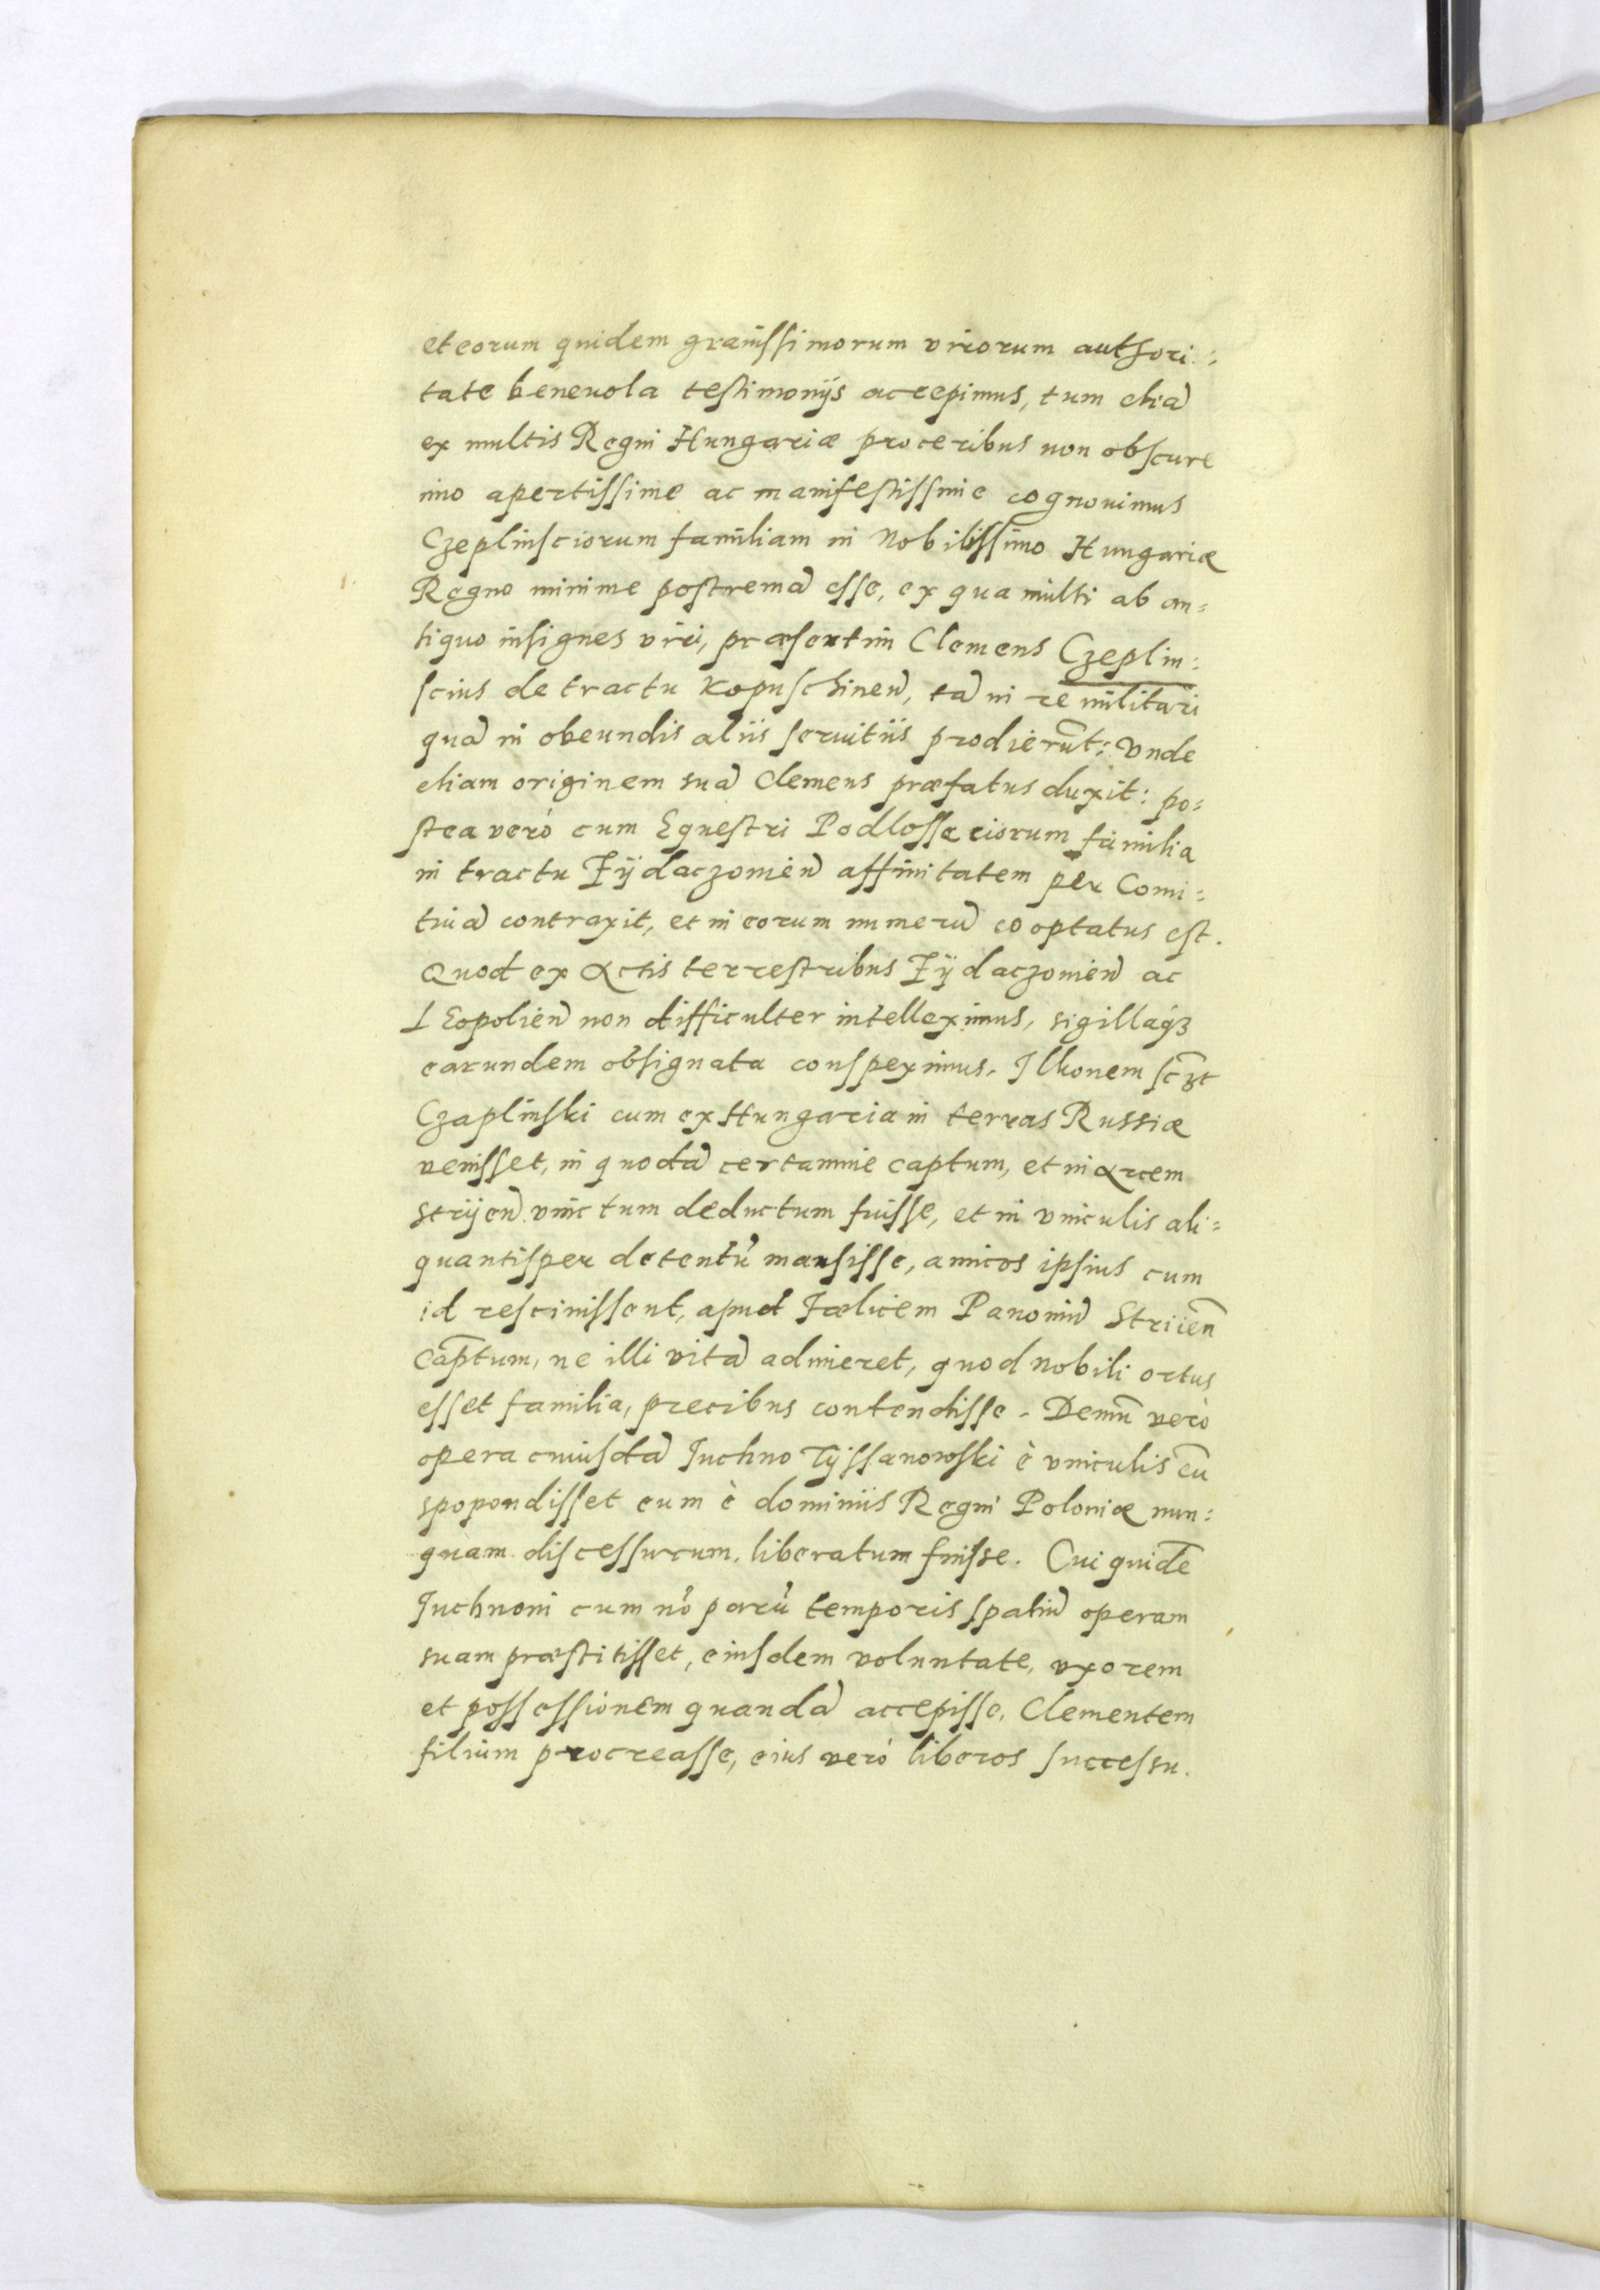 et eorum quidem grauissimorum virorum authori:
tate beneuola testimonijs accepimus, tum etiã
ex multis Regni Hungariæ proceribus non obscure
imo apertissime ac manifestissime cognouimus
Czeplinsciorum familiam in Nobilissimo Hungariæ
Regno minime postremã esse, ex qua multi ab an=
tiquo insignes viri, præsertim Clemens Czeplin:
scius de tractu Kopuschineñ, tã in re militari
quã in obeundis aliis seruitiis prodierūt: Vnde
etiam originem suã Clemens præfatus duxit: po=
stea verò cum Equestri Podlosseciorum familia
in tractu Zÿdaczouieñ affinitatem per Comi:
tiuã contraxit, et in eorum numerũ cooptatus est.
Quod ex Actis terrestribus Zÿdaczouieñ ac
LEopolieñ non difficulter intelleximus, sigillaq̃ȝ
earundem obsignata conspeximus. Ilkonem sc̃ȝt
Czaplinski cum ex Hungaria in terras Russiæ
venisset, in quodã certamine captum, et in Arcem
Strijeñ vinctum deductum fuisse, et in vinculis ali=
quantisper detentũ mansisse, amicos ipsius cum
id resciuissent, apud Fælicem Panoniũ Striieñ
Cap̃tum, ne illi vitã adimeret, quod nobili ortus
esset familia, precibus contendisse. Demũ verò
opera cuiusdã Juchno Tÿssanowski è vinculis cũ
spopondisset eum è dominiis Regni Poloniæ nun:
quam discessurum, liberatum fuisse. Cui quidẽ
Juchnoni cum nõ parũ temporis spatiũ operam
suam præstitisset, eiusdem voluntate, vxorem
et possessionem quandã accepisse, Clementem
filium procreasse, eius verò liberos successu.